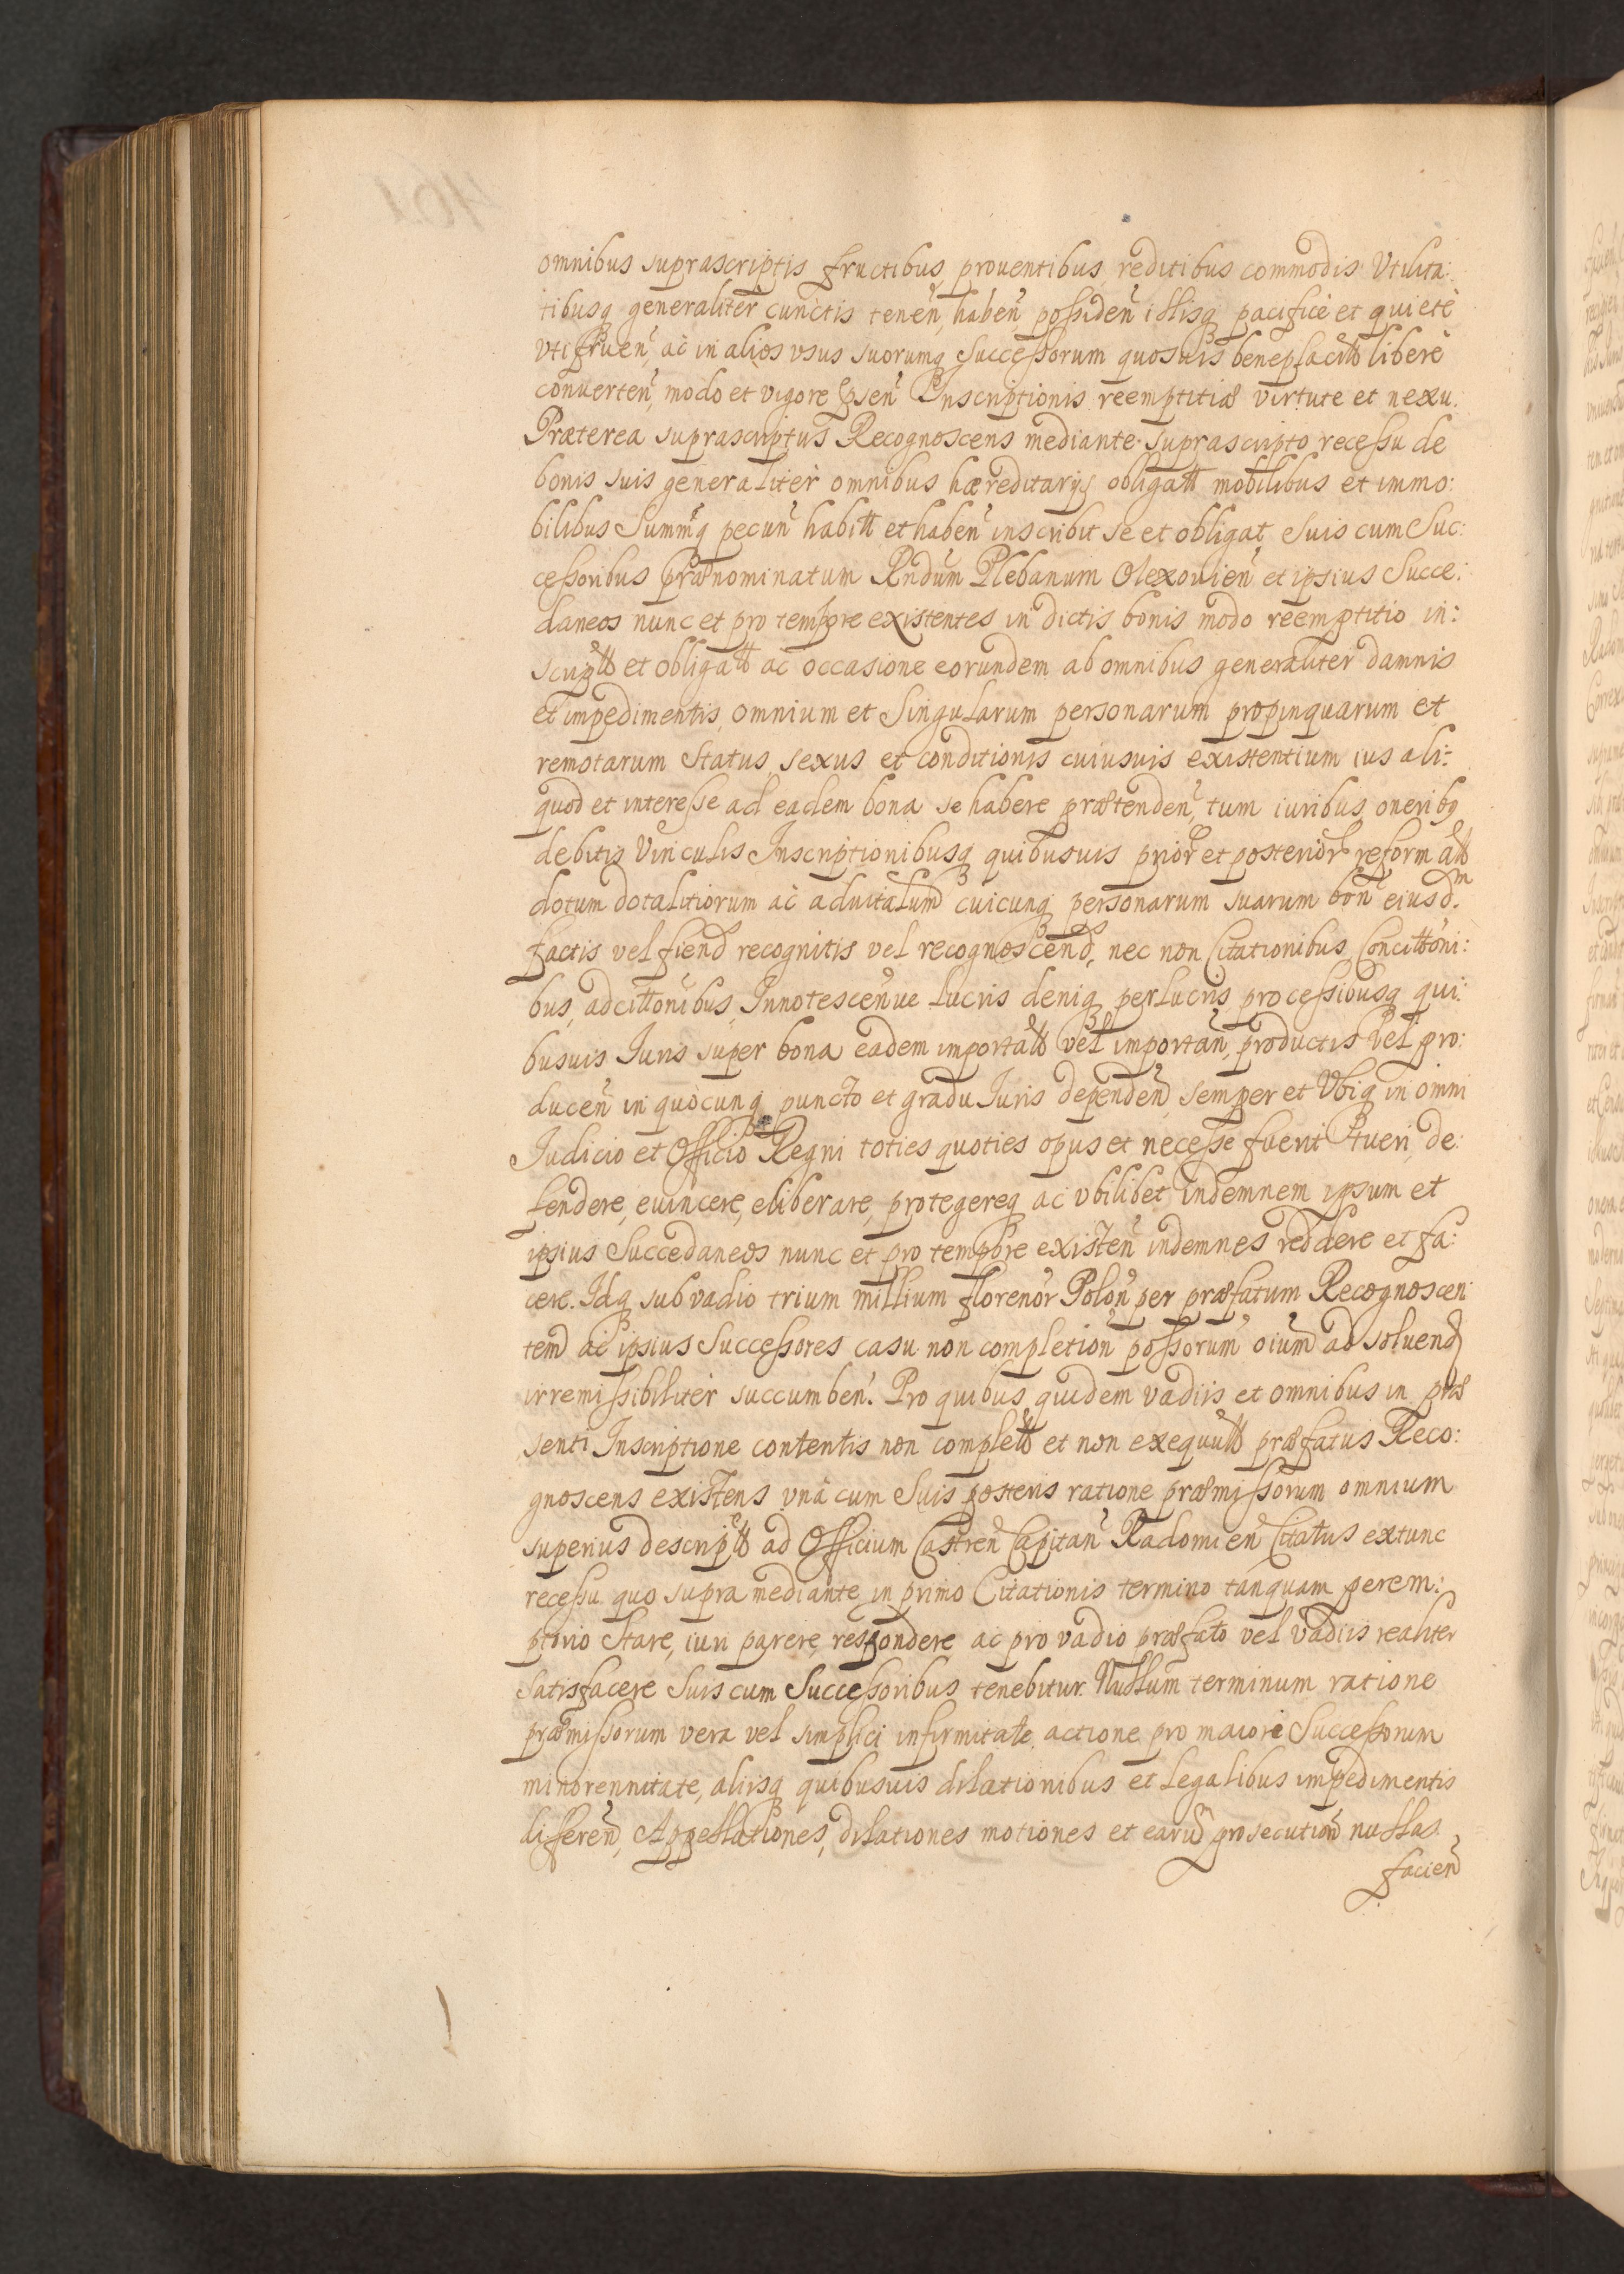 omnibus suprascriptis fructibus, prouentibus, reditibus commodis Vtilita:
tibusq generaliter cunctis tenen, haben, possiden illisq pacifice et quiete
vti fruen, ac in alios vsus suorumq Successorum quosuis beneplacito libere
conuerten, modo et vigore psen Inscriptionis reemptitiæ virtute et nexu.
Præterea suprascriptus Recognoscens mediante suprascripto recessu de
bonis suis generaliter omnibus hæreditarijs obligatt mobilibus et immo:
bilibus Summisq pecun habitt et haben inscribit se et obligat, Suis cum Suc:
cessoribus prænominatum Rndum Plebanum Olexouien et ipsius Succe:
daneos nunc et pro tempore existentes in dictis bonis modo reemptitio in:
scriptt et obligatt ac occasione eorundem ab omnibus generaliter damnis
et impedimentis, omnium et Singularum personarum propinquarum et
remotarum Status, sexus et conditionis cuiusuis existentium ius ali:
quod et interesse ad eadem bona se habere prætenden, tum iuribus, oneribq
debitis Vinculis Inscriptionibusq quibusuis prior et posterior reformatt
dotum dotalitiorum ac aduitalium cuicunq personarum suarum bon eiusd.m
factis vel fiend recognitis vel recognoscend, nec non Citationibus, Concittoni:
bus, adcittonibus, Innotescenue Lucris deniq perlucris, processibusq qui:
busuis Iuris super bona eadem importatt vel importan, productis vel pro:
ducen in quocunq puncto et gradu Iuris dependen, semper et Vbiq in omni
Iudicio et Officio Regni toties quoties opus et necesse fuerit tueri, de:
fendere, euincere, eliberare, protegereq ac vbilibet indemnem ipsum et
ipsius Succedaneos nunc et pro tempore existen indemnes reddere et fa:
cere. Idq sub vadio trium millium florenor Polon per præfatum Recognoscen:
tem ac ipsius Successores casu non completion pmissorum oium absoluend
irremissibiliter succumben. Pro quibus quidem vadiis et omnibus in præ
senti Inscriptione contentis non complett et non exequutt præfatus Reco:
gnoscens existens vna cum Suis posteris ratione præmissorum omnium
superius descriptt ad Officium Castren Capitan Radomien Citatus extunc
recessu quo supra mediante, in primo Citationis termino tanquam perem:
ptorio Stare, iuri parere, respondere ac pro vadio præfato vel vadiis realiter
satisfacere Suis cum Successoribus tenebitur. Nullum terminum ratione
præmissorum vera vel simplici infirmitate, actione pro maiori Successorum
minorennitate, aliisq quibusuis dilationibus et Legalibus impedimentis
differen, Appellationes, dilationes motiones et earum prosecution nullas
facien